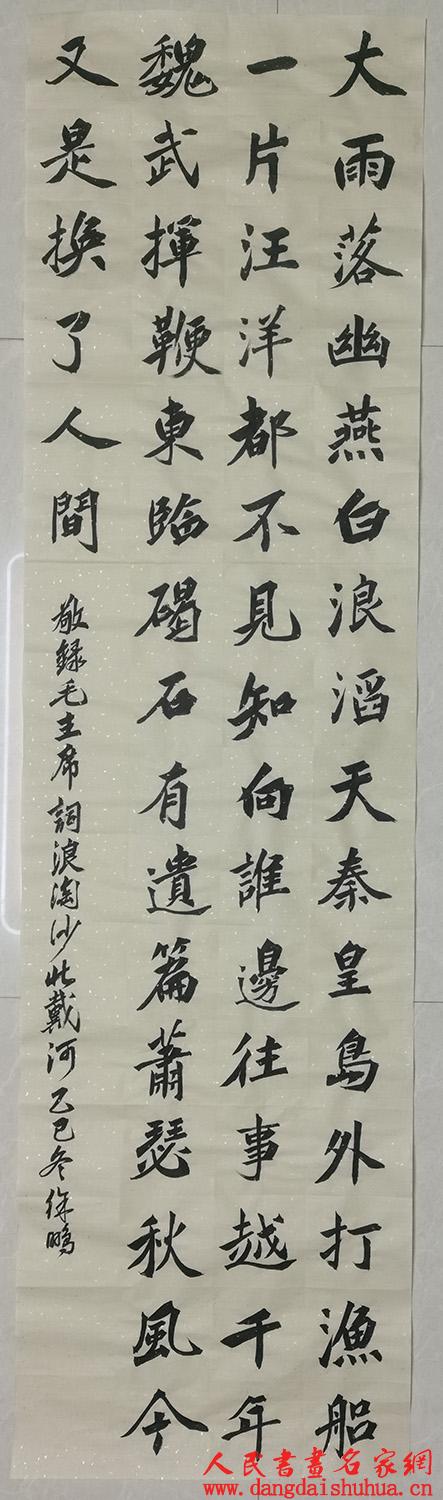 大雨落幽燕白浪滔天秦皇島外打漁船
一片汪洋都不見知向誰邊往事越千年
魏武揮鞭東臨碣石有遺篇蕭瑟秋風今
又是換了人間
敬録毛主席詞浪淘沙北戴河乙巳冬徐鵬
人民書畫名家網
www.dangdaishuhua.com.cn